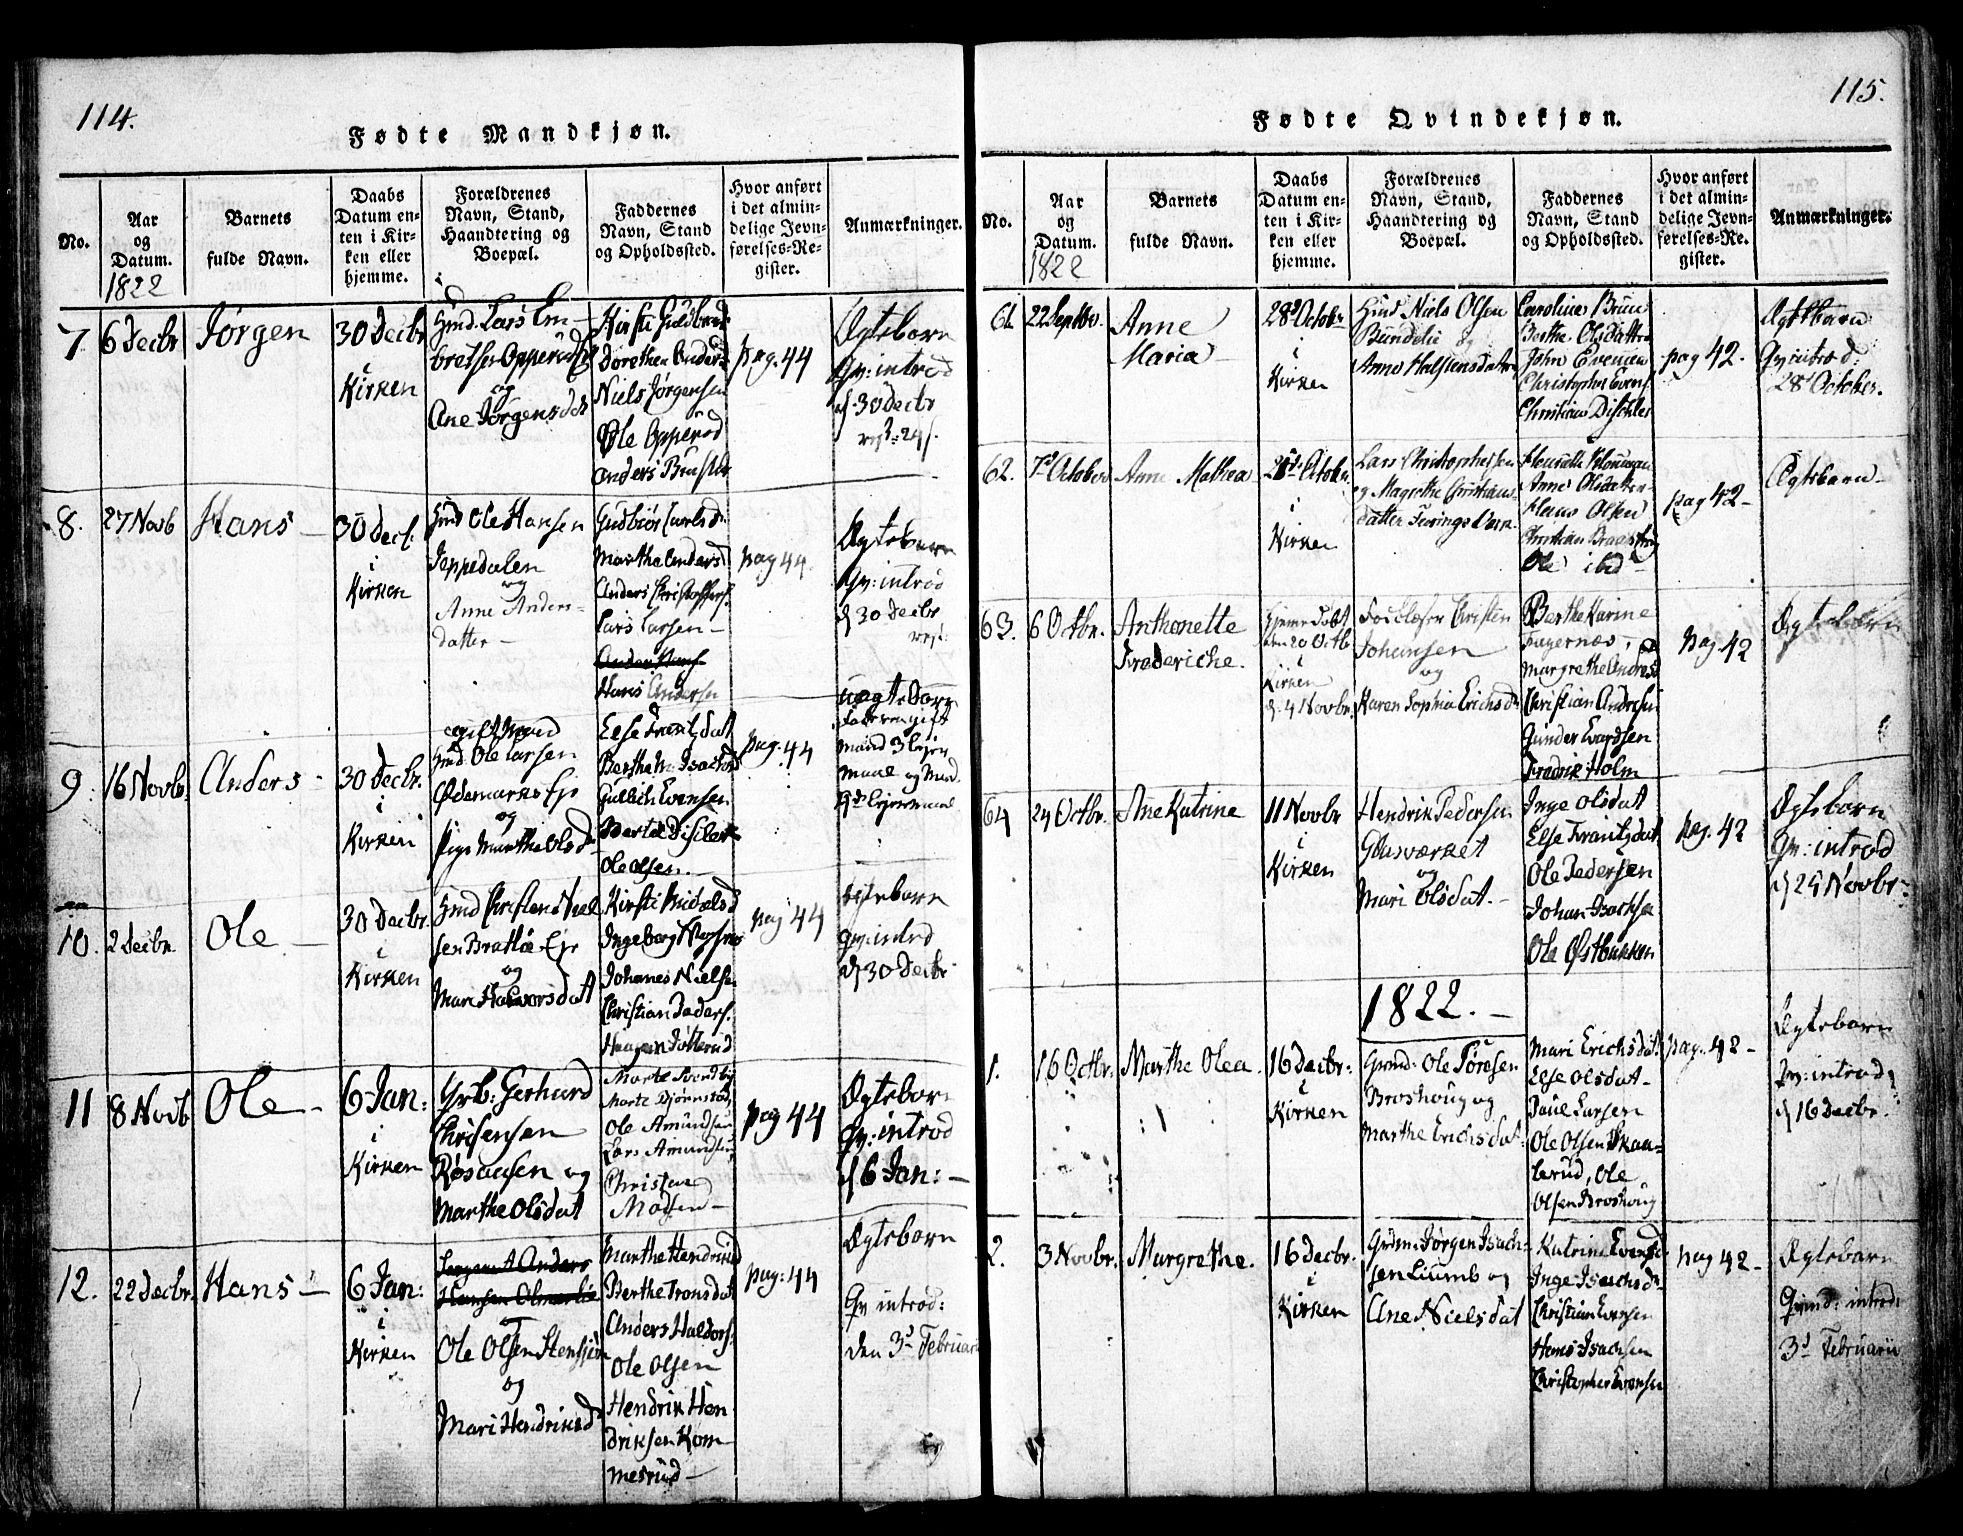 114.
Fødte Mandkjøn.
No.
Aar
og
Datum.
1822
Barnets
fulde Navn.
Daabs
Datum en-
ten i Kir-
ken eller
hjemme.
Forældrenes
Navn, Stand,
Haandtering og
Boepæl.
Faddernes
Navn, Stand
og Opholdssted.
Hvor anført
i det almin-
delige Jevn-
førelses-Re-
gister.
Anmærkninger.
7
6 Decbr
Jørgen
30 Decbr
i
Kirken
Gmd. Lars Em-
bretsen Opperud
og
Ane Jørgensdat
Kirsti Guldbrands
Dorethea Anders
Niels Jørgensen
Ole Opperød
Anders
pag. 44
Ægtebarn
Qv: introd
d. 30 Decbr
8.
27 Novb
Hans
30 Decb:
i
Kirken
Gmd Ole Hansen
Jeppedalen
og
Anne Anders-
datter
Gudbiør Carlsd.
Marthe Andersd
Anders Christophers.
Lars Larsen
Hans Andersen
pag 44.
Ægtebarn
Qv: introd
d. 30 Decbr
9.
16 Novbr.
Anders
30 Decbr.
i
Kirken
Gmd. Ole Larsen
Ødemarks Eje
og
Pige Marthe Olsd.
Else Frantzdat
Berthe M. Isachsd
Gulbich Evensen
Ole Olsen.
pag. 44
uægtebarn
Faderen gift
Mand 3 Lejer
maal og Mod.
Lejermaal
10.
2 Decbr.
Ole
30 Decbr.
i
Kirken
Gmd Christen Niel
sen Bratlie Eje
og
Mari Halvorsdat
Kirsti Nielsd
Ingeborg
Johanes Nielsen
Christian Peders.
Haagen
pag 44
Ægtebarn
Qv: introd
d. 30 Decbr
11
8 Novb
Ole
6 Jan:
i
Kirken
Grb: Gerhard
Chrisensen
Røsaasen og
Marthe Olsdat
Marte Svendby
Marte Bjørnstad
Ole Amundsen
Lars Amundsen
Christen
Madsen
pag 44
Ægtebarn
Qv: introd
d 6 Jan:
12.
22 Decbr.
Hans
6 Jan:
i
Kirken
Ole Olsen
og
Mari Hendriksd
Marthe Hendriksd
Berthe Tronsdat
Anders Haldors.
Ole Olsen
Hendrik Hen
driksen Kom
mesrud
pag: 44
Ægtebarn
Qv introd:
den 3d Februari
115.
Fødte Qvindekjøn.
No.
Aar
og
Datum.
1822
Barnets
fulde Navn.
Daabs
Datum en-
ten i Kir-
ken eller
hjemme.
Forældrenes
Navn, Stand,
Haandtering og
Boepæl.
Faddernes
Navn, Stand
og Opholdssted.
Hvor anført
i det almin-
delige Jevn-
førelses-Re-
gister.
Anmærkninger.
61
22 Septbr.
Anne
Maria
28d Octobr
i
Kirken
Gmd Niels Olsen
Bundelie og
Anne Halstensdatter
Caroline Brun
Berthe Olsdatter
John Evensen
Christopher Evens.
Christian Dischler
pag 42.
Ægtebarn
Qv introd:
28d October.
62.
7d October
Anne Mathea
Octobr.
i
Kirken
Lars Christophersen
og Magrethe Christians-
datter
Anne Olsdatter
Hans Olsen
Christian
Ole ibd
pag 42
Ægtebarn
63.
6 Octbr.
Anthonette
Frederiche.
Hjemedøbt
den 20 Octb
i
Kirken
d. 4 Novbr.
Christen
Johansen
og
Karen Sophia Erichsd
Berthe Karine
Fagernæs,
Margrethe Andresd
Christian Andresen
Gunder Evardsen
Fredrik Holm
pag. 42
Ægtebarn
64
24 Octbr.
Ane Katrine
11 Novbr
i
Kirken
Hendrik Pedersen
Glasværket
og
Mari Olsdat.
Inge Olsdat
Else Frantzdat
Ole Pedersen
Johan Isachsen
Ole Østbakken
pag. 42
Ægtebarn
Qv: introd
d 24 Novbr:
1822.
1.
16 Octbr.
Marthe Olea.
16 Decbr:
i
Kirken
Grmd: Ole Toresen
Broshoug og
Marthe Erichsdat.
Mari Erichsdat.
Else Olsdat
Paul Larsen
Ole Olsen Skaa-
lerud, Ole
Olsen Broshoug
pag. 42
Ægtebarn
Qv: introd:
d 16 Decbr.
2.
3 Novbr.
Margrethe.
16 Decbr.
i
Kirken
Grdm: Jørgen Isach-
sen Liumb og
Ane Nielsdat
Katrine Evensd
Inge Isachsd
Christian Evensen
Hans Isachsen
Christopher Evensen
pag 42
Ægtebarn
Qvind: introd:
3d Februarii